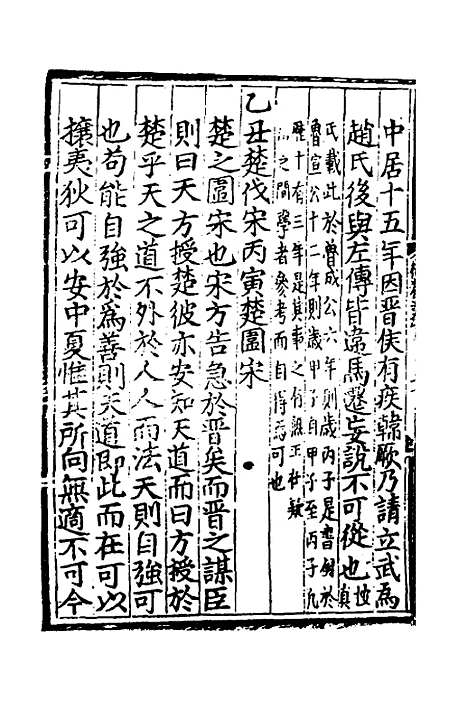 中居十五年因晉侯有疾韓厥乃請立武為
趙氏後與左傳皆違馬遷妄說不可從也
氏載此於魯成公六年則歲丙子是書錯於
魯宣公十二年則歲甲子自甲子至丙子凡
歷十有三年是其事之有訛正抄疑
之間學者參考而自得焉可也
乙丑楚伐宋丙寅楚圍宋
楚之圍宋也宋方告急於晉矣而晉之謀臣
則曰天方授楚彼亦安知天道而曰方授於
楚乎天之道不外於人人而法天則自強可
也苟能自強於為善則天道即此而在可以
攘夷狄可以安中夏惟其所向無適不可今